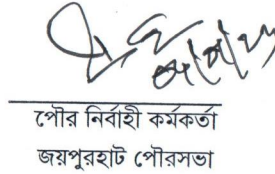 পৌর নির্বাহী কর্মকর্তা
জয়পুরহাট পৌরসভা